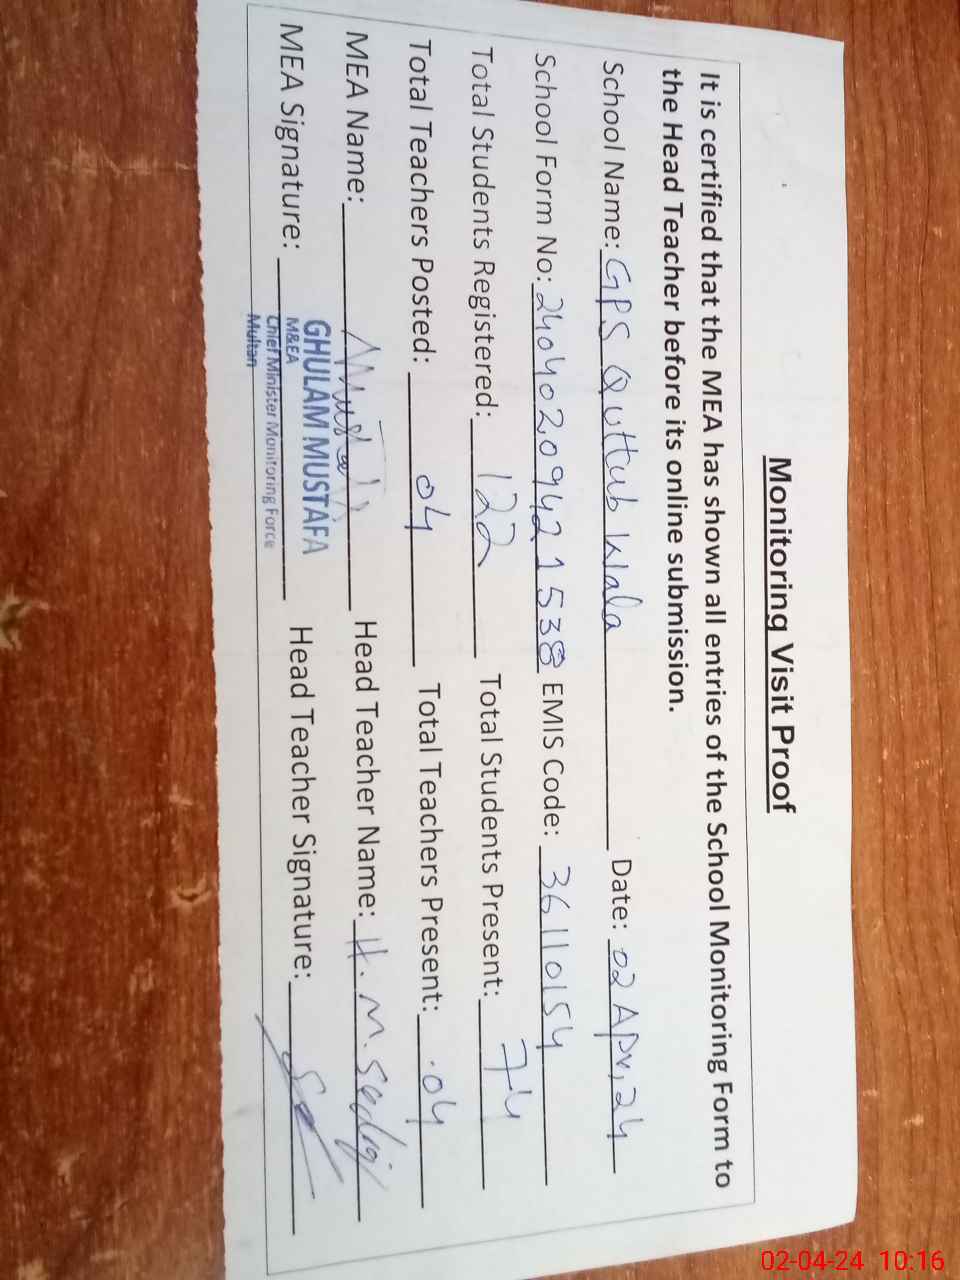 Monitoring Visit Proof
It is certified that the MEA has shown all entries of the School Monitoring Form to
the Head Teacher before its online submission.
School Name: GPS Quttub Wala Date: 02 Apr, 24
School Form No: 2404020942 1538 EMIS Code: 36110154
Total Students Registered: 122 Total Students Present: 74
Total Teachers Posted: 04 Total Teachers Present: 04
MEA Name: Head Teacher Name: H. M.
MEA Signature: Head Teacher Signature:
GHULAM MUSTAFA
M&EA
Chief Minister Monitoring Force
Multan
02-04-24 10:16